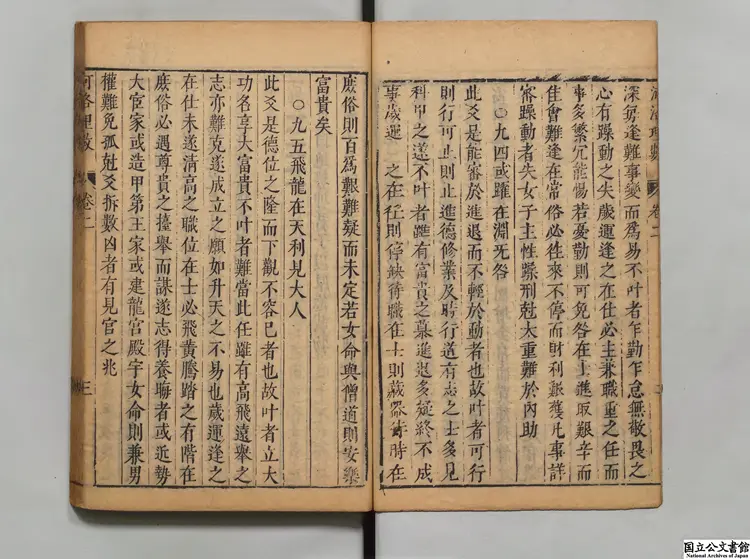 深每逢難事變而爲易不叶者乍勤乍怠無敬畏之
心有躁動之失歲運逢之在仕必主兼職重之任而
事多繁冗能惕若憂勤則可免咎在士進取艱辛而
佳會難逢在常俗必往來不停而財利艱獲凡事詳
審躁動者失女子主性躁刑尅太重難於內助
○九四或躍在淵无咎
此爻是能審於進退而不輕於動者也故叶者可行
則行可止則止進德修業及時行道有志之士多見
科甲之遂不叶者雖有富貴之慕進退多疑終不成
事歲運 之在任則停缺待職在士則藏器待時在
河洛理數 卷二
庶俗則百爲艱難疑而未定若女命與僧道則安樂
富貴矣
○九五飛龍在天利見大人
此爻是德位之隆而下觀不容已者也故叶者立大
功名享大富貴不叶者難當此任雖有高飛遠舉之
志亦難克遂成立之願如升天之不易也歲運逢之
在仕未遂清高之職位在士必飛黃騰踏之有階在
庶俗必遇尊貴之擡舉而謀遂志得養晦者或近勢
大宦家或造甲第王家或建龍宮殿宇女命則兼男
權難免孤尅爻拆數凶者有見官之兆
河洛理數 卷二 三
国立公文書館
National Archives of Japan